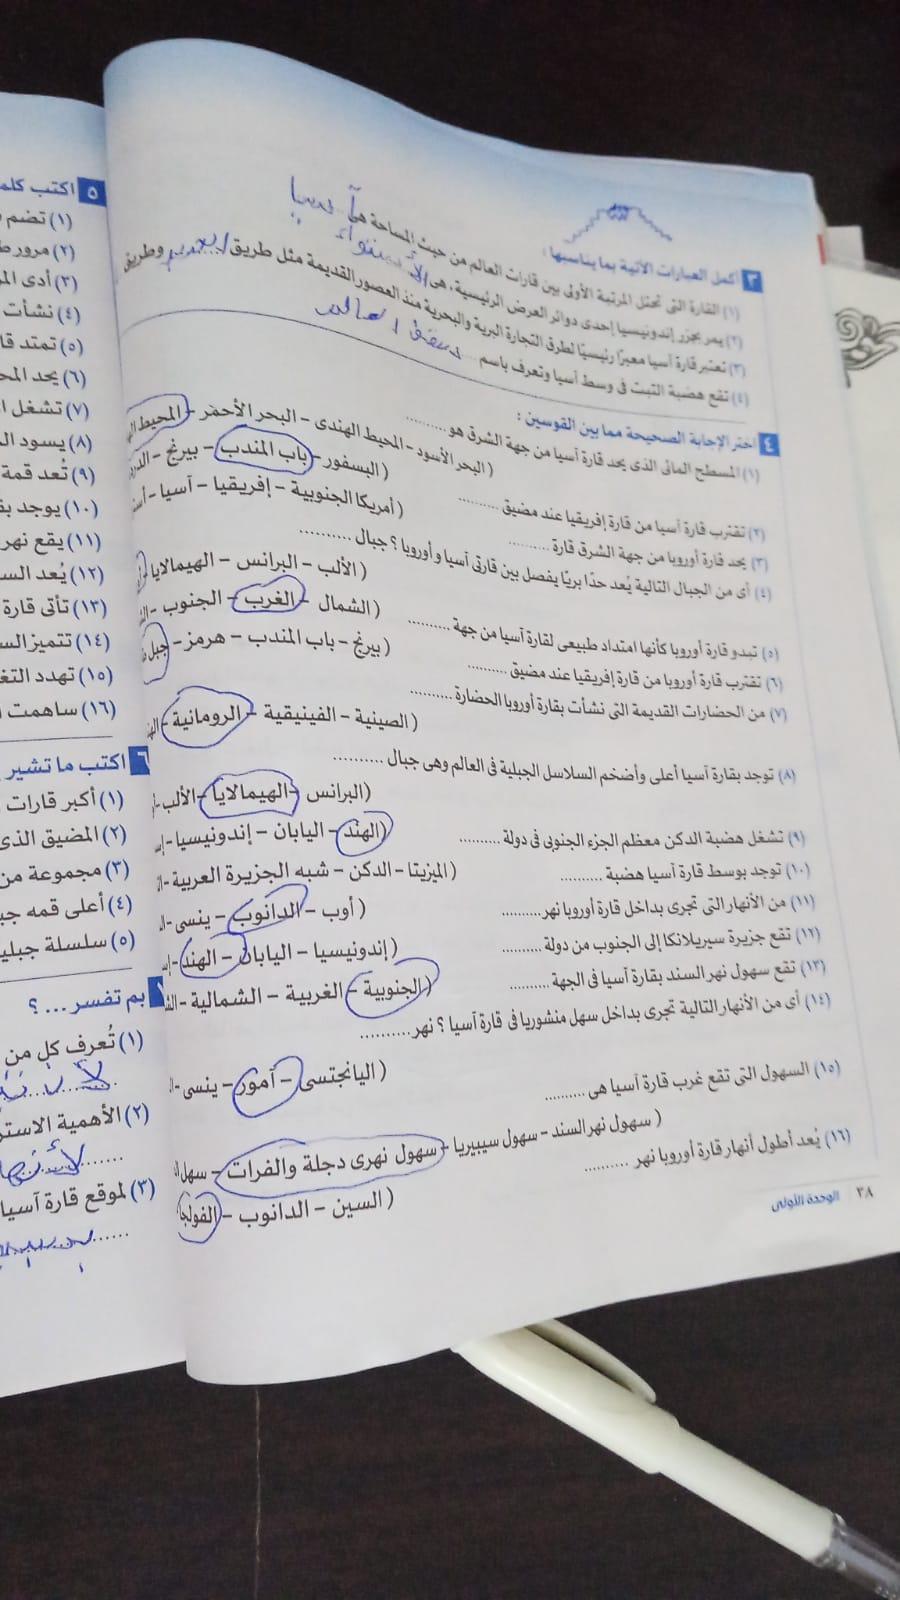 ٣ أكمل العبارات الآتية بما يناسبها :
(١) القارة التى تحتل المرتبة الأولى بين قارات العالم من حيث المساحة هى آسيا
(٢) يمر بجزر إندونيسيا إحدى دوائر العرض الرئيسية، هى الأستواء
(٣) تعتبر قارة آسيا معبرًا رئيسيًا لطرق التجارة البرية والبحرية منذ العصور القديمة مثل طريق الحرير وطريق
(٤) تقع هضبة التبت فى وسط آسيا وتعرف باسم سقف العالم
٤ اختر الإجابة الصحيحة مما بين القوسين :
(١) المسطح المائى الذى يحد قارة آسيا من جهة الشرق هو ..........
(البحر الأسود – المحيط الهندى – البحر الأحمر – المحيط
(٢) تقترب قارة آسيا من قارة إفريقيا عند مضيق ..........
(البسفور – باب المندب – بيرنج –
(٣) يحد قارة أوروبا من جهة الشرق قارة ..........
(أمريكا الجنوبية – إفريقيا – آسيا –
(٤) أى من الجبال التالية يُعد حدًا بريًا يفصل بين قارتى آسيا وأوروبا ؟ جبال ..........
(الألب – البرانس – الهيمالايا
(٥) تبدو قارة أوروبا كأنها امتداد طبيعى لقارة آسيا من جهة ..........
(الشمال – الغرب – الجنوب –
(٦) تقترب قارة أوروبا من قارة إفريقيا عند مضيق ..........
(بيرنج – باب المندب – هرمز – جبل
(٧) من الحضارات القديمة التى نشأت بقارة أوروبا الحضارة ..........
(الصينية – الفينيقية – الرومانية –
(٨) توجد بقارة آسيا أعلى وأضخم السلاسل الجبلية فى العالم وهى جبال ..........
(البرانس – الهيمالايا – الألب –
(٩) تشغل هضبة الدكن معظم الجزء الجنوبى فى دولة ..........
(الهند – اليابان – إندونيسيا –
(١٠) توجد بوسط قارة آسيا هضبة ..........
(الميزيتا – الدكن – شبه الجزيرة العربية –
(١١) من الأنهار التى تجرى بداخل قارة أوروبا نهر..........
(أوب – الدانوب – ينسى –
(١٢) تقع جزيرة سيريلانكا إلى الجنوب من دولة ..........
(إندونيسيا – اليابان – الهند –
(١٣) تقع سهول نهر السند بقارة آسيا فى الجهة ..........
(الجنوبية – الغربية – الشمالية –
(١٤) أى من الأنهار التالية تجرى بداخل سهل منشوريا فى قارة آسيا ؟ نهر ..........
(اليانجتسى – آمور – ينسى –
(١٥) السهول التى تقع غرب قارة آسيا هى ..........
(سهول نهر السند – سهول سيبيريا – سهول نهرى دجلة والفرات – سهل
(١٦) يُعد أطول أنهار قارة أوروبا نهر ..........
(السين – الدانوب – الفولجا
٣٨ الوحدة الأولى
٥ اكتب
(١) تضم
(٢) مرور
(٣) أدى
(٤) نشأت
(٥) تمتد
(٦) يحد
(٧) تشغل
(٨) يسود
(٩) تُعد قمة
(١٠) يوجد
(١١) يقع نهر
(١٢) يُعد
(١٣) تأتى قارة
(١٤) تتميز
(١٥) تهدد
(١٦) ساهمت
٦ اكتب ما تشير
(١) أكبر قارات
(٢) المضيق الذى
(٣) مجموعة من
(٤) أعلى قمه
(٥) سلسلة
بم تفسر ... ؟
(١) تُعرف كل من
(٢) الأهمية
لأنها
(٣) لموقع قارة آسيا